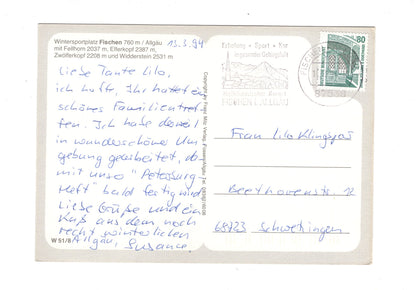 Wintersportplatz Fischen 760 m / Allgäu
mit Fellhorn 2037 m, Elferkopf 2387 m,
Zwölferkopf 2208 m und Widderstein 2531 m
13.3.94
Liebe Tante Lilo,
ich hoffe, Ihr hattet ein
schönes Familientref-
fen. Ich habe derweil
in wunderschöner Um
gebung gearbeitet, da-
mit unser "Petersburg
Heft" bald fertig wird
Liebe Grüße und ein
Kuß aus dem noch
recht winterlichen
Allgäu, Susanne
W 51/8
Erholung • Sport • Kur
80
Frau Lilo Klingspor
Beethovenstr. 12
68723 Schwetzingen